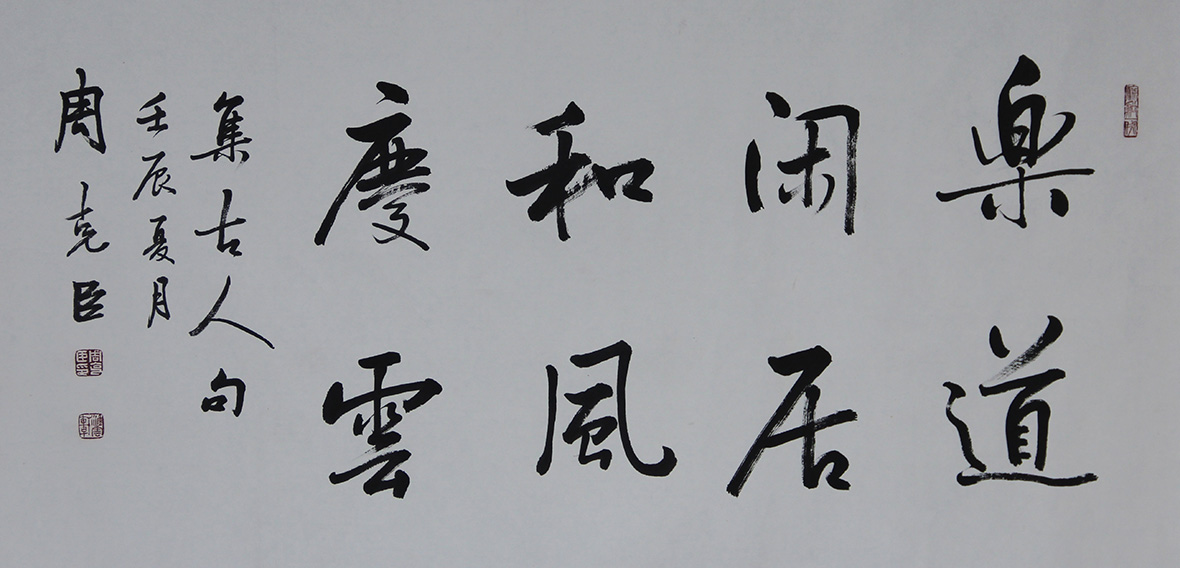 樂道
闲居
和風
慶雲
集古人句
壬辰夏月
周克臣